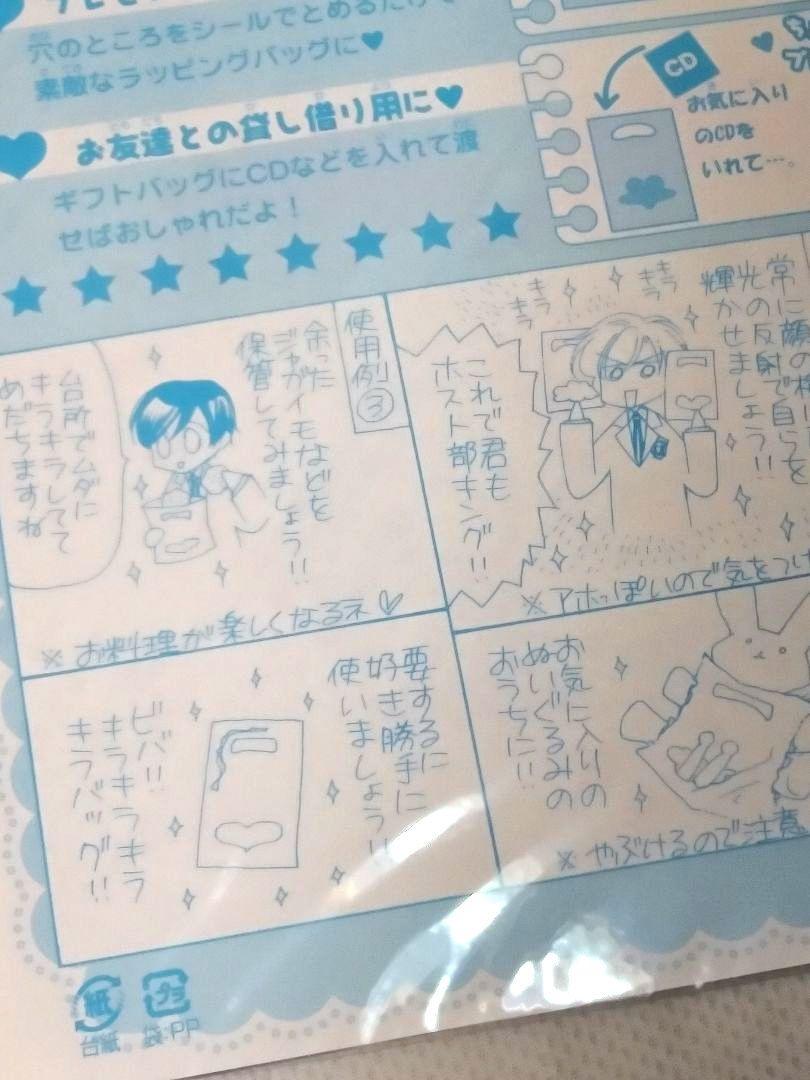 穴のところをシールでとめるだけで
素敵なラッピングバッグに♥
お友達との貸し借り用に♥
ギフトバッグにCDなどを入れて渡
せばおしゃれだよ!
CD
お気に入り
のCDを
いれて…。
常に顔の横
光の反射で自らを
輝かせましょう!!
キラキラ
キラキラ
これで君も
ホスト部キング!!
※アホっぽいので気をつけ
使用例③
余った
ジャガイモなどを
保管してみましょう!!
台所でムダに
キラキラしてて
めだちますね
※お料理が楽しくなるネ♡
お気に入りの
ぬいぐるみの
おうちに!!
※やぶけるので注意
要するに
好き勝手に
使いましょう!!
ビバ!!
キラキラキラ
キラバッグ!!
紙
台紙
プラ
袋:PP